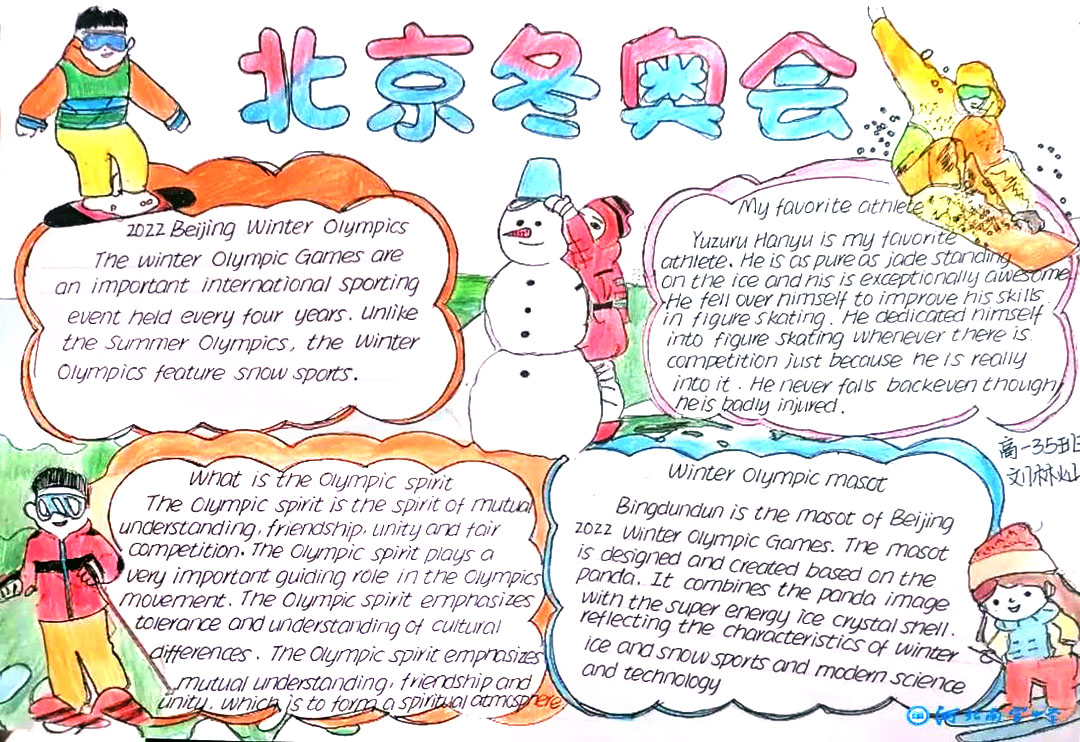 北京冬奥会
2022 Beijing Winter Olympics
The winter Olympic Games are
an important international sporting
event held every four years. unlike
the Summer Olympics, the Winter
Olympics feature snow sports.
My favorite athlete
Yuzuru Hanyu is my favorite
athlete. He is as pure as jade standing
on the ice and his is exceptionally awesome
He fell over himself to improve his skills
in figure skating. He dedicated himself
into figure skating whenever there is
competition just because he is really
into it. He never falls backeven though
he is badly injured.
高一35班
刘林
What is the Olympic spirit
The Olympic spirit is the spirit of mutual
understanding, friendship, unity and fair
competition. The Olympic spirit plays a
very important guiding role in the Olympics
movement. The Olympic spirit emphasizes
tolerance and understanding of cultural
differences. The Olympic spirit emphasizes
mutual understanding, friendship and
unity. which is to form a spiritual atmosphere.
Winter Olympic masot
Bingdundun is the masot of Beijing
2022 Winter Olympic Games. The masot
is designed and created based on the
panda. It combines the panda image
with the super energy ice crystal shell.
reflecting the characteristics of winter
ice and snow sports and modern science
and technology
河北南宫中学